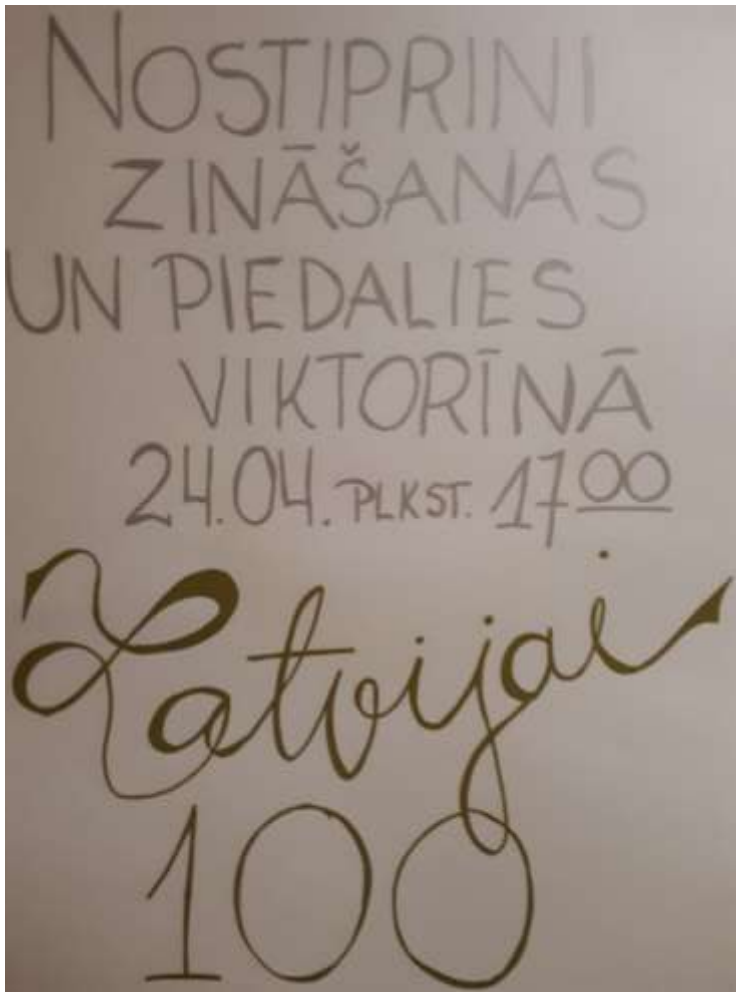 NOSTIPRINI
ZINĀŠANAS
UN PIEDALIES
VIKTORĪNĀ
24.04. PLKST. 17 00
Latvijai
100